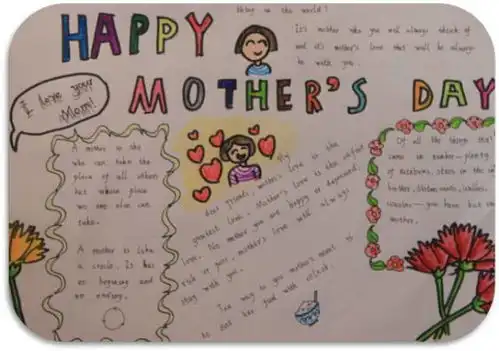 thing in the world!
HAPPY
It's mother who you will always think of
and it's mother's love that will be always
be with you.
MOTHER'S DAY
I love you
Mom!
A mother is she
who can take the
place of all others
but whose place
no one else can
take.
A mother is like
a circle. It has
no beginning and
no ending.
My
dear friends, mother's love is the
greatest love. Mother's love is the
love. No matter you are happy or depressed,
rich or poor, mother's love will always
stay with you.
The way to you mother's heart is
to eat her food with
Of all the things that
come in number—plenty
of rainbows, stars in the
brother, sisters, aunts,
cousins—you have but one
mother.